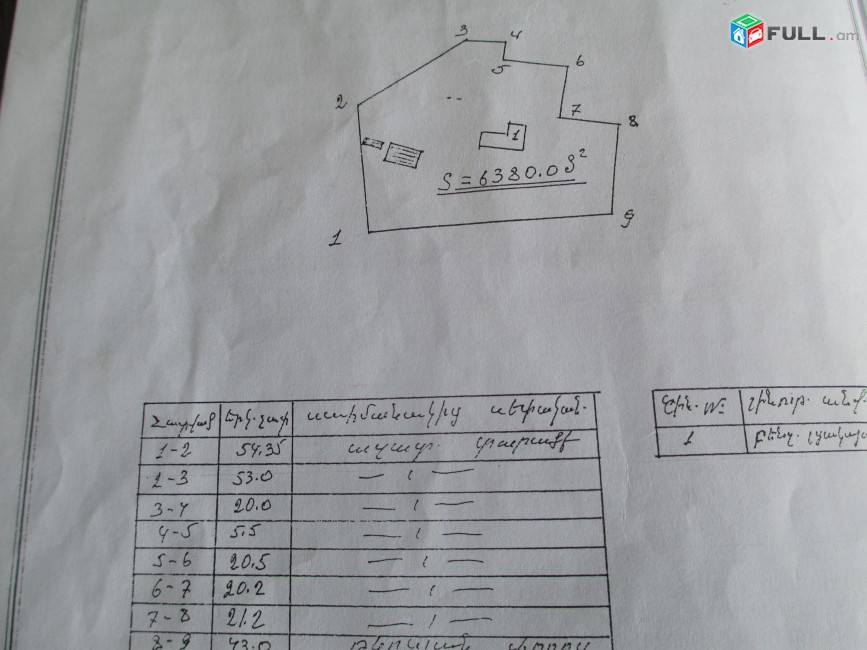 FULL.am
3 4
5 6
2
7 8
1
S = 6380.0 ֆ²
1 9
Հատված երկ. չափ սահմանակից սեփական.
1-2 54.35 ազատ. տարածք
2-3 53.0 — ՛ —
3-4 20.0 — ՛ —
4-5 5.5 — ՛ —
5-6 20.5 — ՛ —
6-7 20.2 — ՛ —
7-8 21.2 — ՛ —
8-9 43.0
Շին. №
1 բենզ. լցակայա